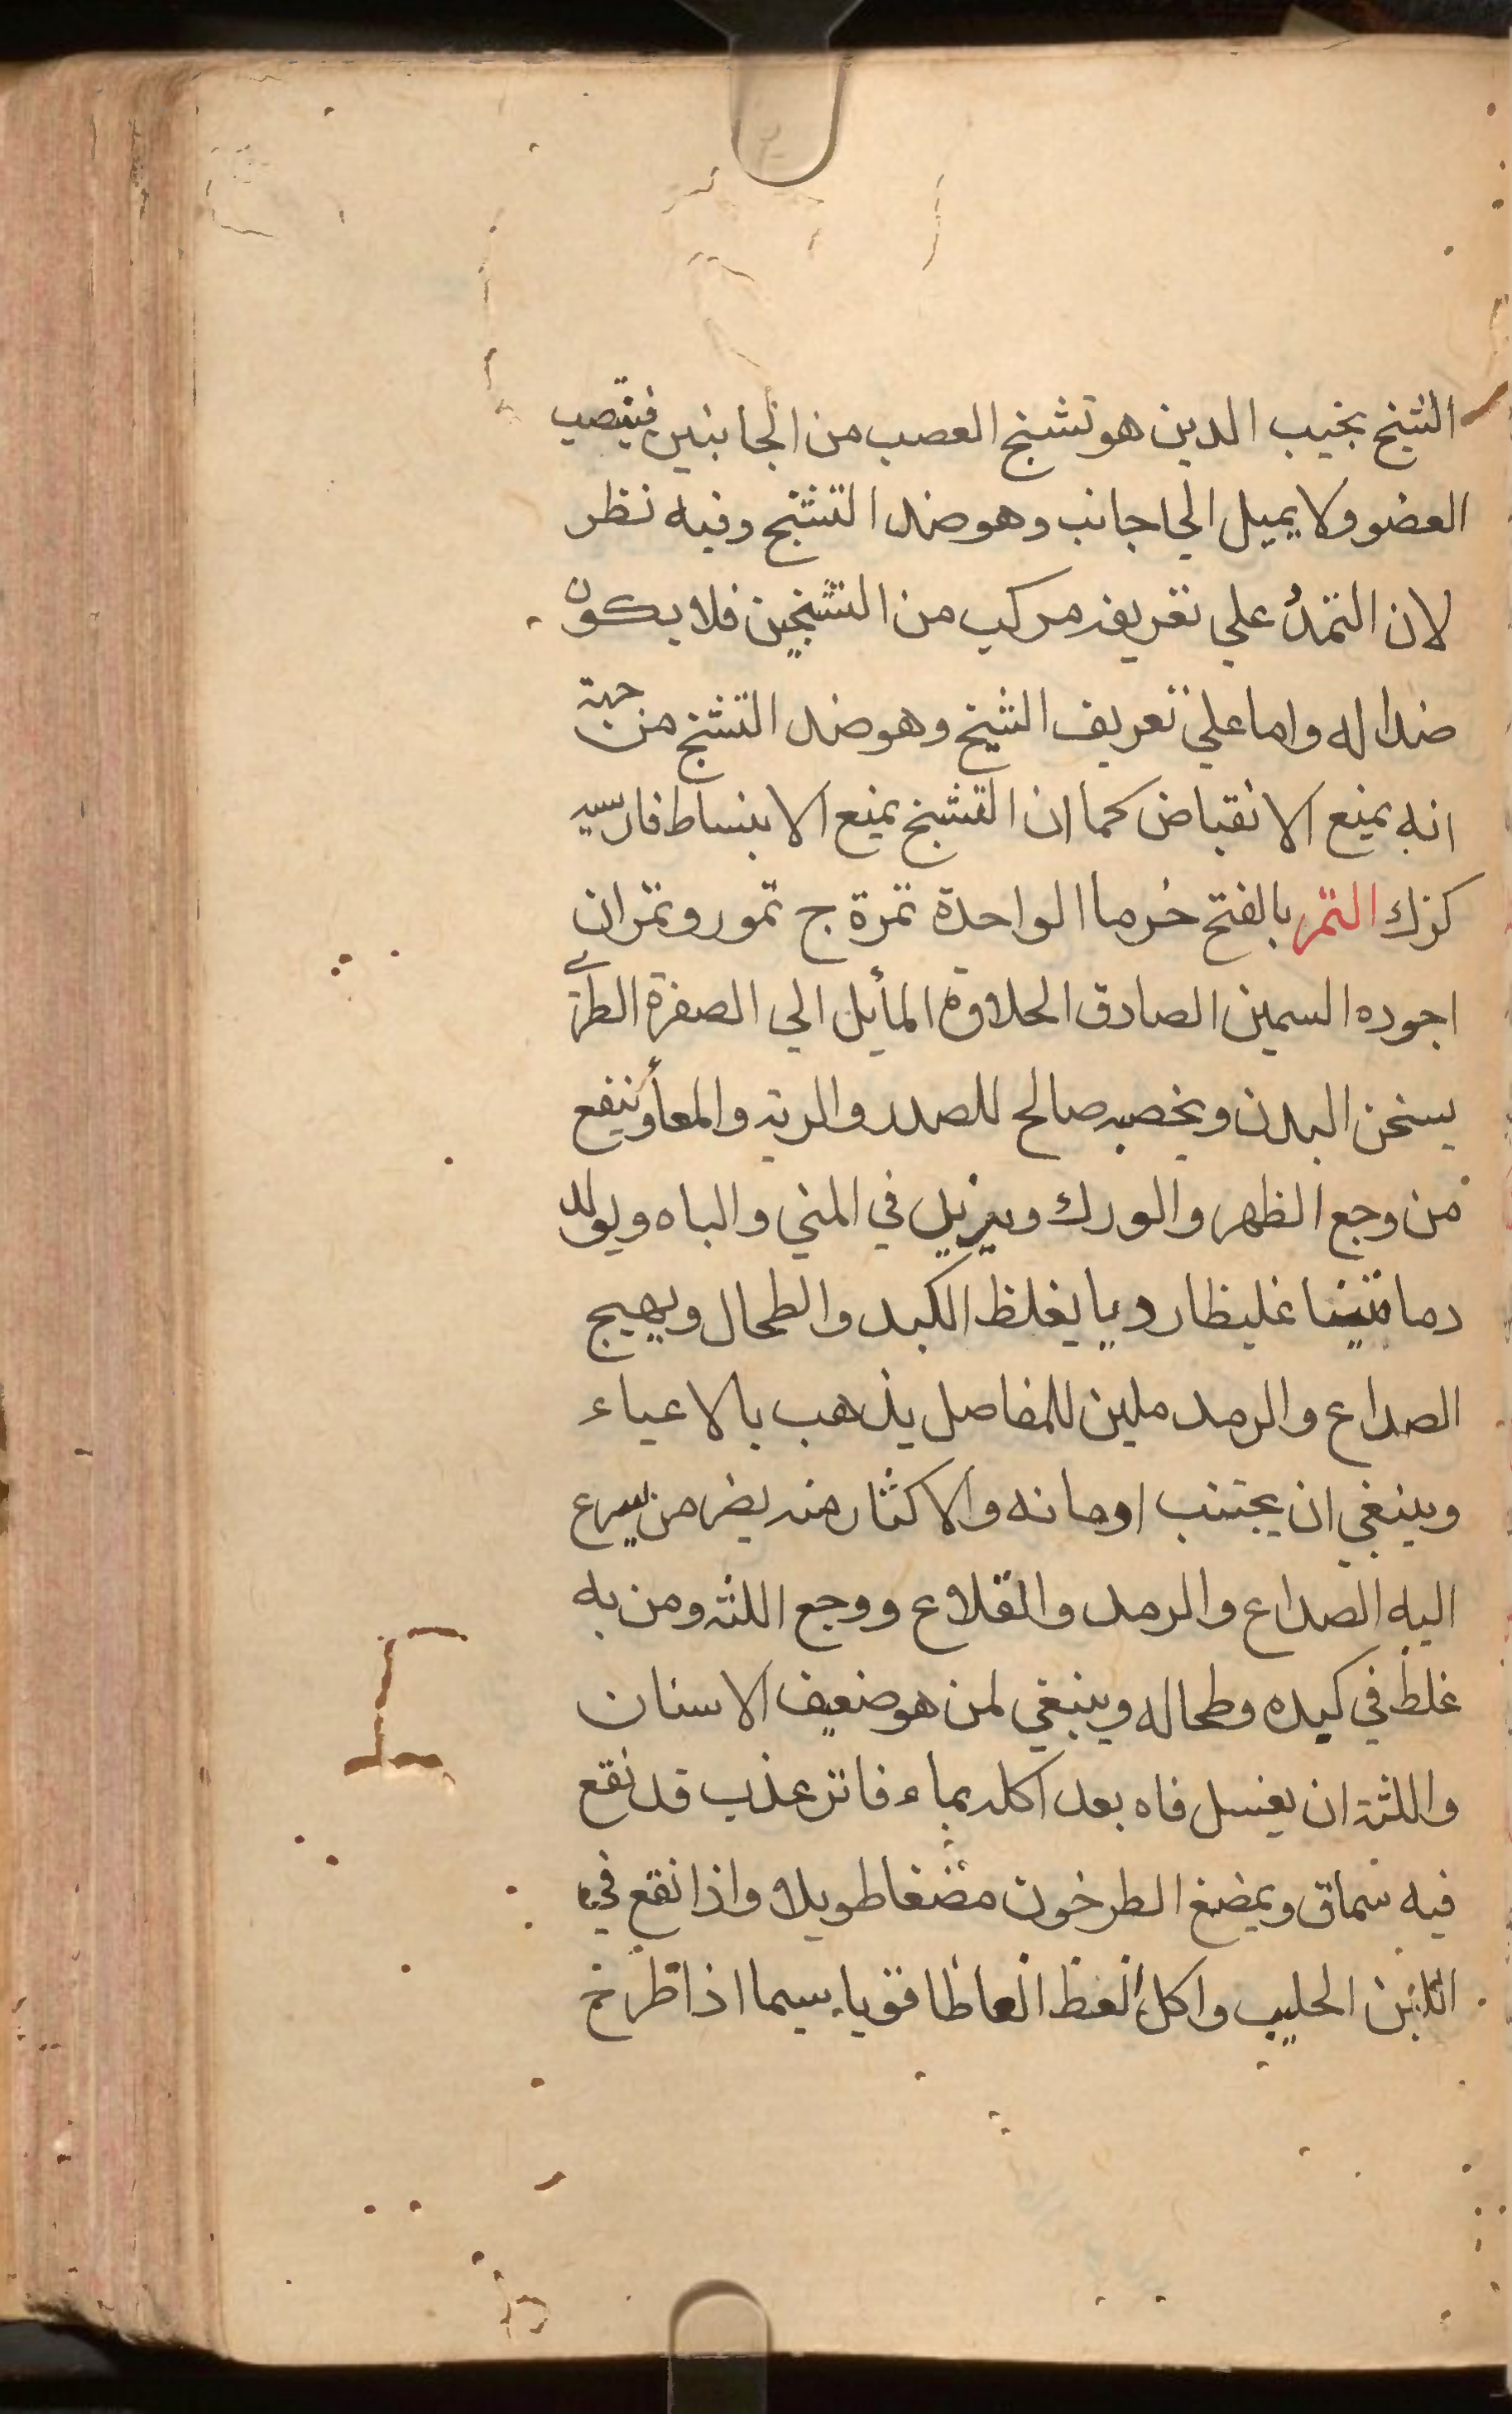 الشيخ نجيب الدين هو تشنج العصب من الجانبين فينتصب
العضو ولا يميل الي جانب وهو ضد التشنج وفيه نظر
لان التمدد علي تعريفه مركب من التشنجين فلا يكون
ضدا له واما علي تعريف الشيخ وهو ضد التشنج من جهة
انه يمنع الانقباض كما ان التشنج يمنع الانبساط فارسيه
كزك التمر بالفتح خرما الواحدة تمرة ج تمور وتمران
اجوده السمين الصادق الحلاوة المأيل الي الصفرة الطري
يسخن البدن ويخصبه صالح للصدر والريه والمعاء وينفع
من وجع الظهر والورك ويزيد في المني والباه ويولد
دما متينا غليظا رديا يغلظ الكبد والطحال ويهيج
الصداع والرمد ملين للمفاصل يذهب بالاعياء
وينبغي ان يجتنب اومانه والاكثار منه يضر من يسرع
اليه الصداع والرمد والقلاع ووجع اللثه ومن به
غلظ في كبده وطحاله وينبغي لمن هو ضعيف الاسنان
واللثة ان يغسل فاه بعد اكله بماء فاتر عذب قد نقع
فيه سماق ويمضغ الطرخون مضغا طويلا واذا نقع في
اللبن الحليب واكل انعظ انعاظا قويا سيما اذا طرح